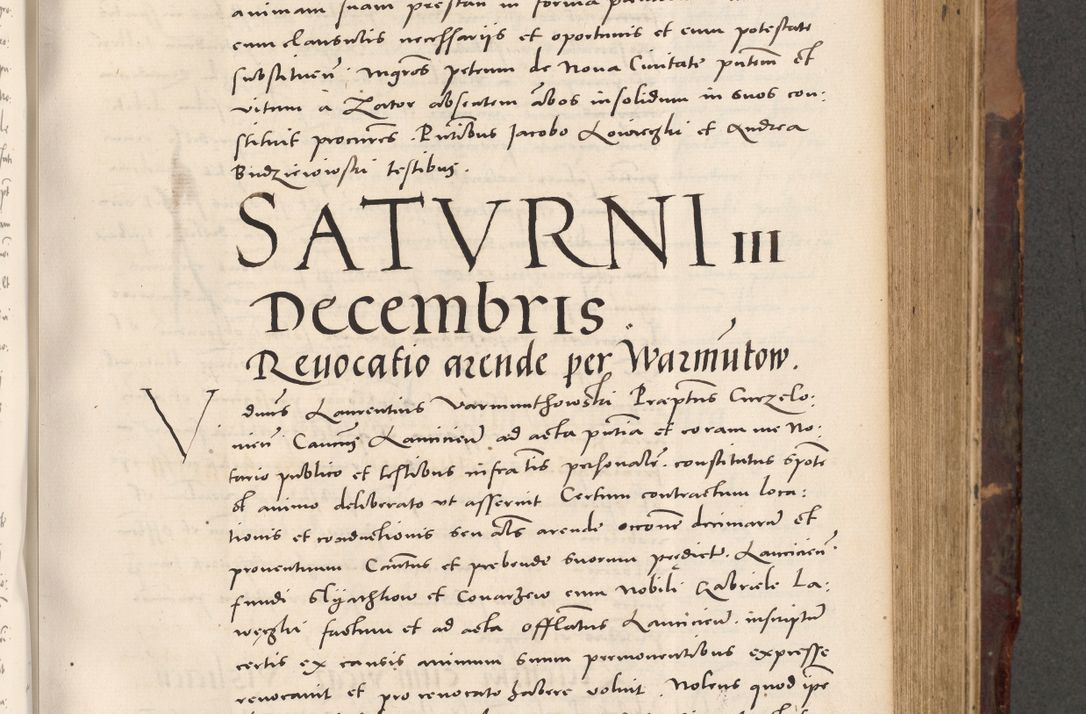 animam suam prestan in forma
cum clausulis necessarijs et oportunis et cum potestate
substituen. Mgros petrum de Noua Ciuitate pntem et
vitum a Zator absentem abos insolidum in suos con:
stituit procures. Pntibus Iacobo Lowieczki et Andrea
Budzieiowski testibus.
SATVRNI III
Decembris.
Reuocatio arende per Warmutow.
Vdnus Laurentius Varmunthowski Præptus Curzelo:
uien Canus Lancicien ad acta pntia et coram me No:
tario publico et testibus infratis personale. constitutus sponte
et animo deliberato vt asseruit Certum contractum loca:
tionis et conductionis seu als arende occone decimaru et
prouentuum Cantus et prebende suorum predict. Lancicien.
fundi Slyachtow et Couarzew cum Nobili Gabriele La:
węczki factum et ad acta offlatus Lancicien. inscriptu
certis ex causis animum suum permouentibus expresse
reuocauit et pro reuocato habere voluit. Nolens quod ipse